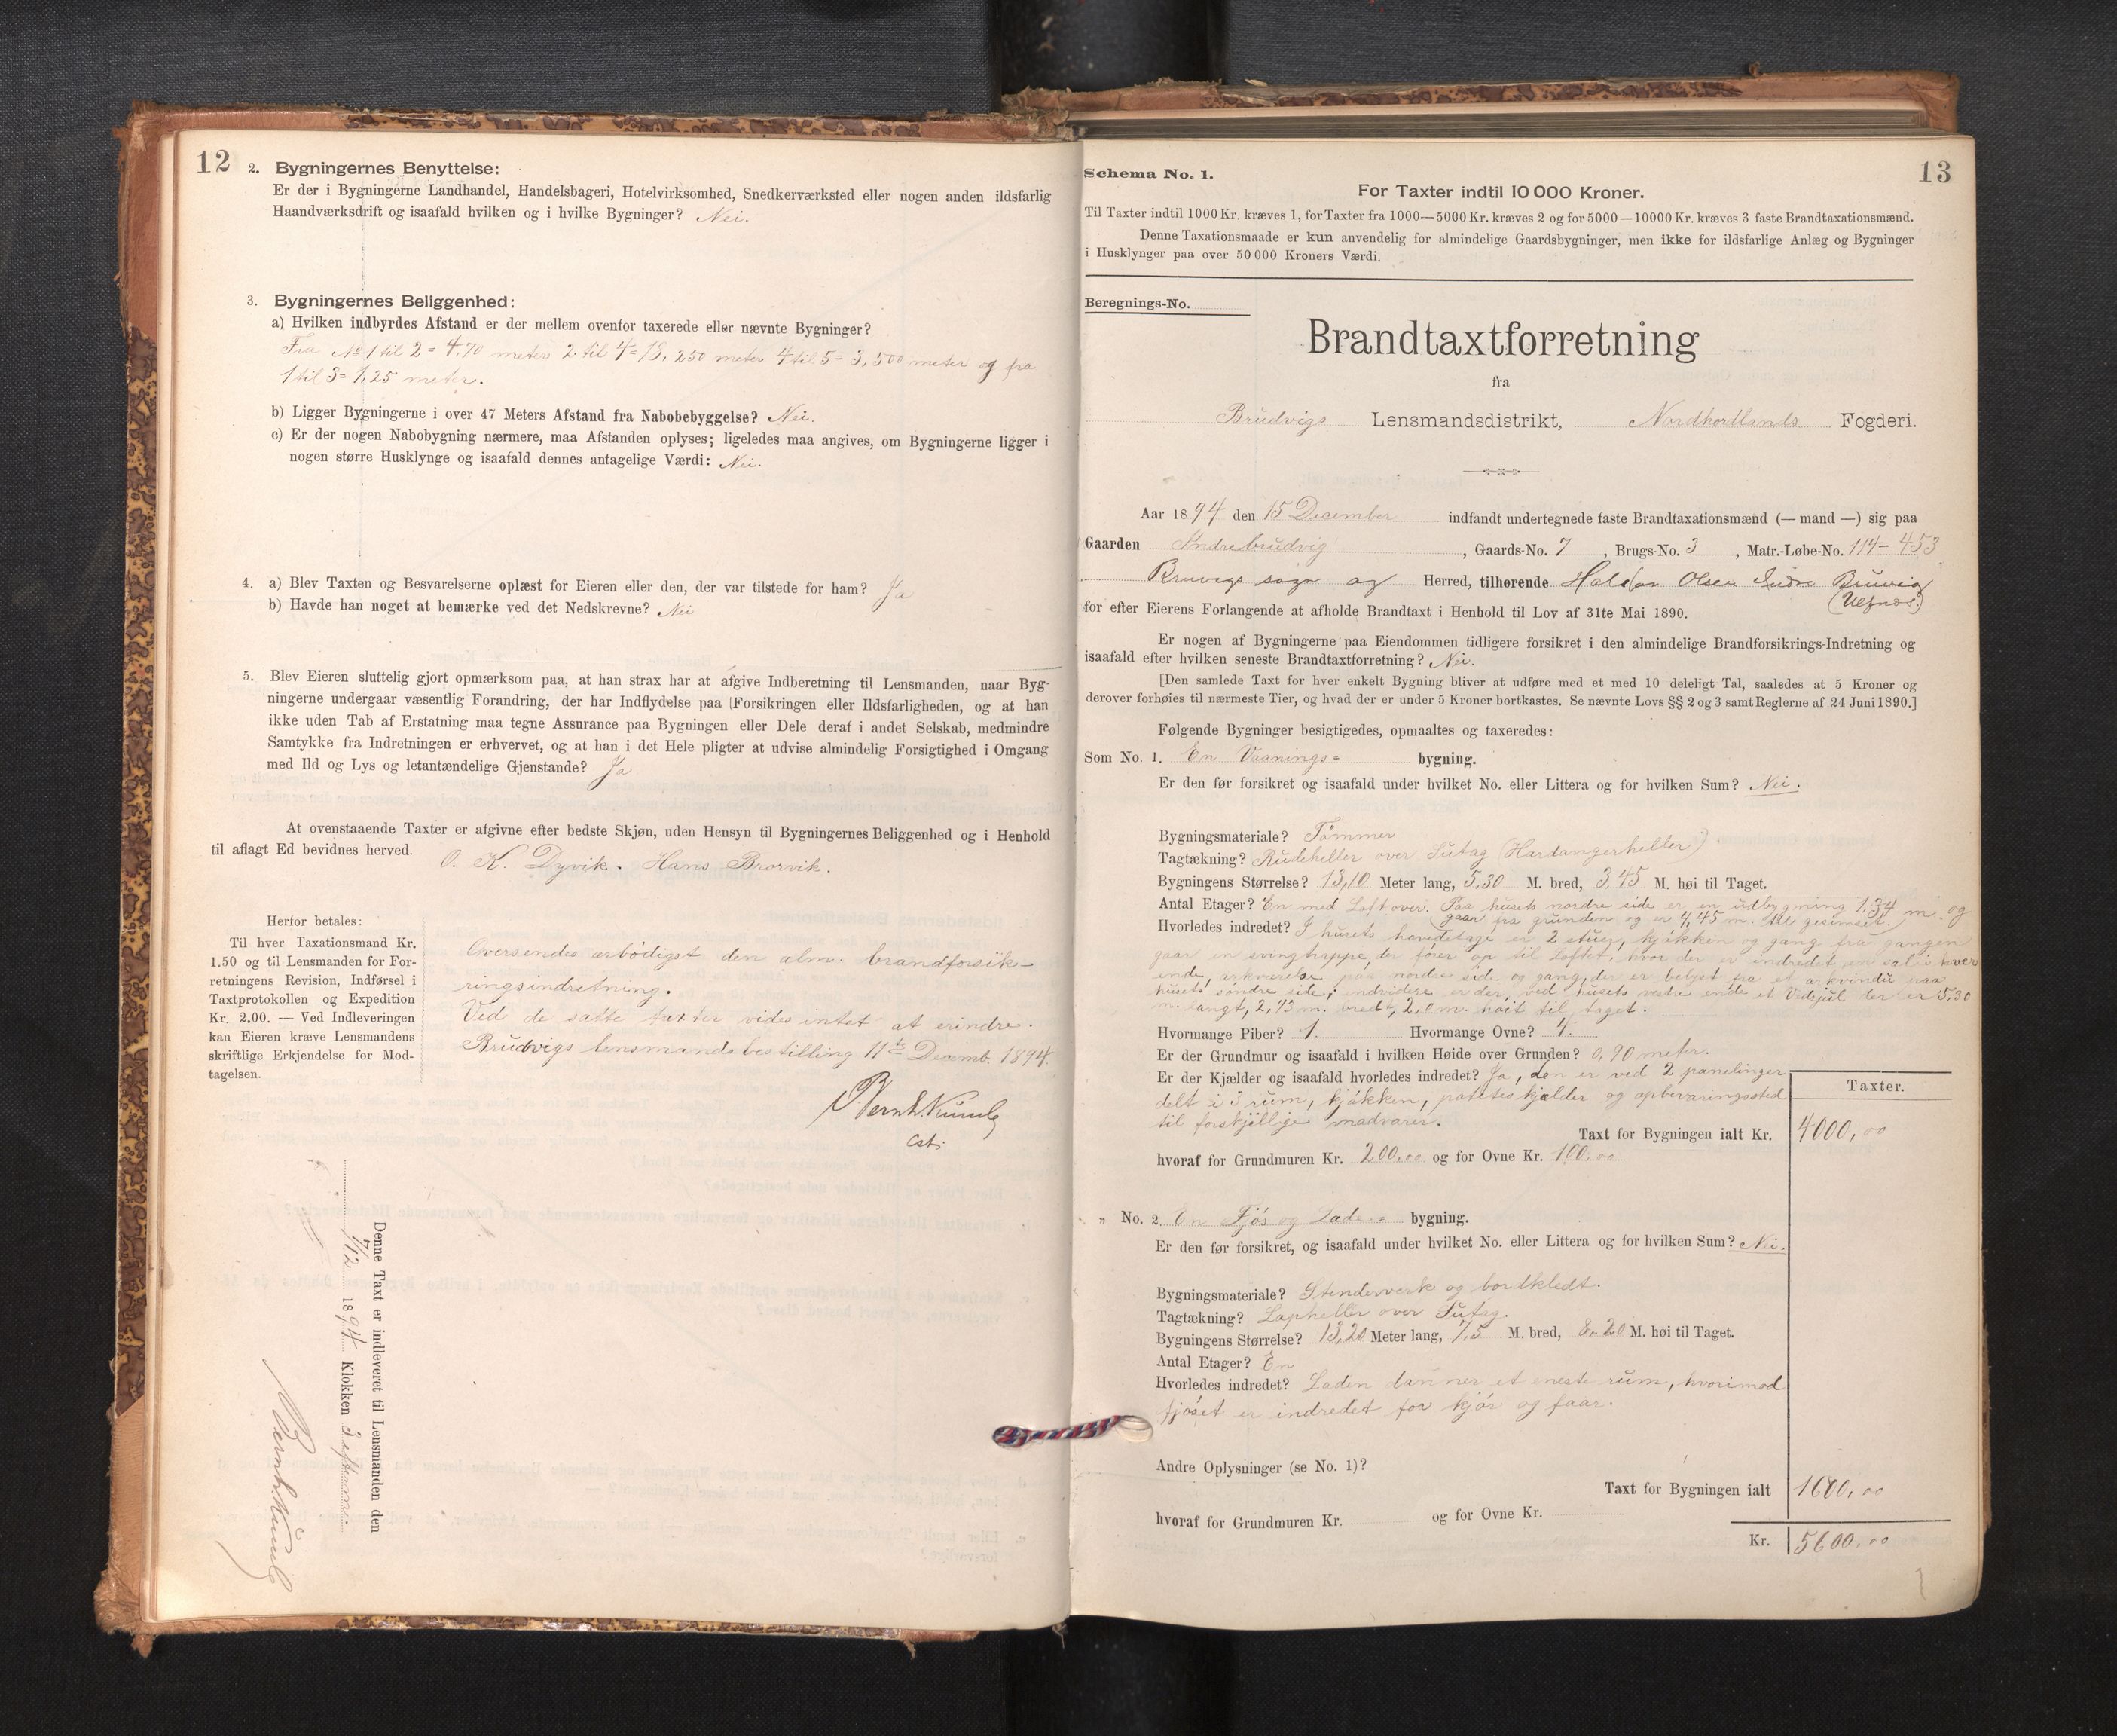 12
2. Bygningernes Benyttelse:
Er der i Bygningerne Landhandel, Handelsbageri, Hotelvirksomhed, Snedkerværksted eller nogen anden ildsfarlig
Haandværksdrift og isaafald hvilken og i hvilke Bygninger? Nei.
3. Bygningernes Beliggenhed:
a) Hvilken indbyrdes Afstand er der mellem ovenfor taxerede eller nævnte Bygninger?
Fra No 1 til 2 = 4,70 meter 2 til 4 = 13,250 meter 4 til 5 = 3,500 meter og fra
1 til 3 = 7,25 meter.
b) Ligger Bygningerne i over 47 Meters Afstand fra Nabobebyggelse? Nei.
c) Er der nogen Nabobygning nærmere, maa Afstanden oplyses; ligeledes maa angives, om Bygningerne ligger i
nogen større Husklynge og isaafald dennes antagelige Værdi: Nei.
4. a) Blev Taxten og Besvarelserne oplæst for Eieren eller den, der var tilstede for ham? Ja
b) Havde han noget at bemærke ved det Nedskrevne? Nei
5. Blev Eieren sluttelig gjort opmærksom paa, at han strax har at afgive Indberetning til Lensmanden, naar Byg-
ningerne undergaar væsentlig Forandring, der har Indflydelse paa Forsikringen eller Ildsfarligheden, og at han
ikke uden Tab af Erstatning maa tegne Assurance paa Bygningen eller Dele deraf i andet Selskab, medmindre
Samtykke fra Indretningen er erhvervet, og at han i det Hele pligter at udvise almindelig Forsigtighed i Omgang
med Ild og Lys og letantændelige Gjenstande? Ja
At ovenstaaende Taxter er afgivne efter bedste Skjøn, uden Hensyn til Bygningernes Beliggenhed og i Henhold
til aflagt Ed bevidnes herved.
O. K. Dyvik. Hans Brorvik.
Herfor betales:
Til hver Taxationsmand Kr.
1.50 og til Lensmanden for For-
retningens Revision, Indførsel i
Taxtprotokollen og Expedition
Kr. 2.00. — Ved Indleveringen
kan Eieren kræve Lensmandens
skriftlige Erkjendelse for Mod-
tagelsen.
Oversendes ærbødigst den alm. brandforsik-
ringsindretning.
Ved de satte taxter vides intet at erindre.
Brudvigs lensmandsbestilling 11te Decemb. 1894.
cst.
Denne Taxt er indleveret til Lensmanden den
7/12 1894 Klokken 3 eftermid.
13
Schema No. 1.
For Taxter indtil 10 000 Kroner.
Til Taxter indtil 1000 Kr. kræves 1, for Taxter fra 1000—5000 Kr. kræves 2 og for 5000—10000 Kr. kræves 3 faste Brandtaxationsmænd.
Denne Taxationsmaade er kun anvendelig for almindelige Gaardsbygninger, men ikke for ildsfarlige Anlæg og Bygninger
i Husklynger paa over 50 000 Kroners Værdi.
Beregnings-No.
Brandtaxtforretning
fra
Brudvigs Lensmandsdistrikt, Nordhordlands Fogderi.
Aar 1894 den 15 December indfandt undertegnede faste Brandtaxationsmænd (— mand —) sig paa
Gaarden Indrebrudvig, Gaards-No. 7, Brugs-No. 3, Matr.-Løbe-No. 114 - 453
Bruvigs sogn og Herred, tilhørende Haldor Olsen Indre Bruvig
for efter Eierens Forlangende at afholde Brandtaxt i Henhold til Lov af 31te Mai 1890.
Er nogen af Bygningerne paa Eiendommen tidligere forsikret i den almindelige Brandforsikrings-Indretning og
isaafald efter hvilken seneste Brandtaxtforretning? Nei.
[Den samlede Taxt for hver enkelt Bygning bliver at udføre med et med 10 deleligt Tal, saaledes at 5 Kroner og
derover forhøies til nærmeste Tier, og hvad der er under 5 Kroner bortkastes. Se nævnte Lovs §§ 2 og 3 samt Reglerne af 24 Juni 1890.]
Følgende Bygninger besigtigedes, opmaaltes og taxeredes:
Som No. 1. En Vaanings- bygning.
Er den før forsikret og isaafald under hvilket No. eller Littera og for hvilken Sum? Nei.
Bygningsmateriale? Tømmer
Tagtækning? Rudeheller over Sutag (Hardangerheller)
Bygningens Størrelse? 13,10 Meter lang, 5,30 M. bred, 3,45 M. høi til Taget.
Antal Etager? En med Loft over. Paa husets nordre side er en udbygning 1,34 m. og
gaar fra grunden og er 4,45 m. til gesimset.
Hvorledes indredet? I husets hovedetage er 2 stuer, kjøkken og gang fra gangen
gaar en svingtrappe, der fører op til Loftet, hvor der er indredet en sal i hver
ende, arkværelse paa nordre side og gang, der er belyst fra et paa
husets søndre side; endvidere er der, ved husets vestre ende et Vedsjul der er 5,30
m. langt, 2,73 m. bredt, 2, m. høit til taget.
Hvormange Piber? 1. Hvormange Ovne? 4.
Er der Grundmur og isaafald i hvilken Høide over Grunden? 0,90 meter.
Er der Kjælder og isaafald hvorledes indredet? Ja, den er ved 2 panelinger
delt i 3 rum, kjøkken, poteteskjælder og opbevaringssted
til forskjellige madvarer.
Taxter.
Taxt for Bygningen ialt Kr. 4000,00
hvoraf for Grundmuren Kr. 200,00 og for Ovne Kr. 100,00
„ No. 2. En Fjøs og Lade- bygning.
Er den før forsikret, og isaafald under hvilket No. eller Littera og for hvilken Sum? Nei.
Bygningsmateriale? Stenderverk og bordkledt.
Tagtækning? Lapheller over Sutag.
Bygningens Størrelse? 13,20 Meter lang, 7,5 M. bred, 8,20 M. høi til Taget.
Antal Etager? En
Hvorledes indredet? Laden danner et eneste rum, hvorimod
fjøset er indredet for kjør og faar.
Andre Oplysninger (se No. 1)?
Taxt for Bygningen ialt 1600,00
hvoraf for Grundmuren Kr. og for Ovne Kr.
Kr. 5600,00